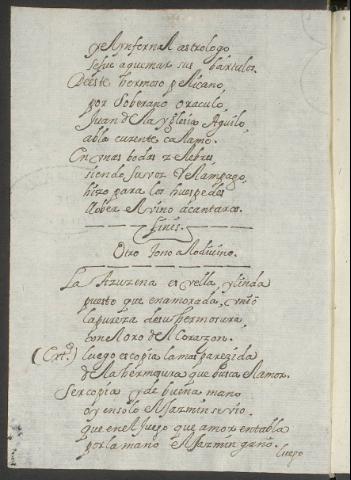 y el ynfernal astrologo
se fue a quemar sus bartulos.
De este hermoso pelicano,
por soberano oraculo,
Juan de la yglesia Aguilo,
abla cu
calamo.
En unas bodas zelebres,
siendo su voz el Rampago,
hizo para los huespedes
llober el vino a cantaros.
finis.
Otro tono a lo divino.
La Azuzena es vella, y linda
puesto que enamorada, unio
la pureza de su hermosura,
con el oro de el Corazon.
luego es copia la mas parezida
de la hermosura que busca el amor.
Ser copia y de buena mano
oy en solo el Jazmin se vio
que en el Juego que amor entabla
por la mano el Jazmin gano.
luego